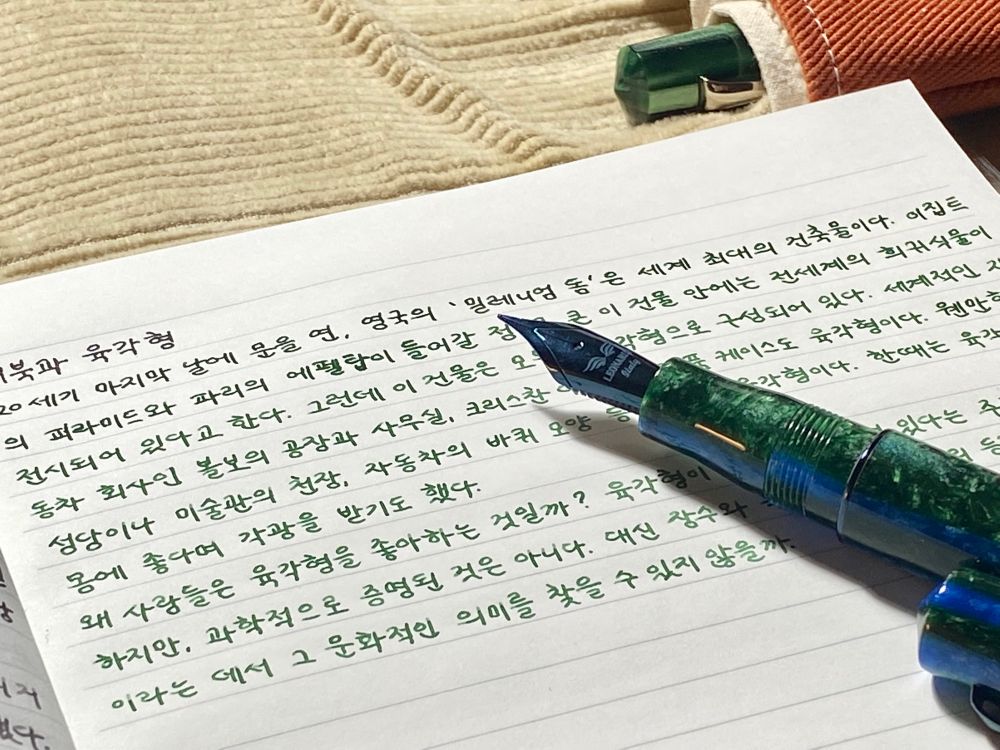 북과 육각형
20세기 마지막 날에 문을 연, 영국의 '밀레니엄 돔'은 세계 최대의 건축물이다. 이집트
의 피라미드와 파리의 에펠탑이 들어갈 이 건물 안에는 전세계의 희귀식물이
전시되어 있다고 한다. 그런데 이 건물은 구성되어 있다. 세계적인
동차 회사인 볼보의 공장과 사무실, 크리스찬 케이스도 육각형이다. 웬만한
성당이나 미술관의 천장, 자동차의 바퀴 모양 한때는
몸에 좋다며 각광을 받기도 했다.
왜 사람들은 육각형을 좋아하는 것일까? 육각형이 있다는
하지만, 과학적으로 증명된 것은 아니다. 대신 장수와
이라는 데서 그 문화적인 의미를 찾을 수 있지 않을까.
LEONARDO